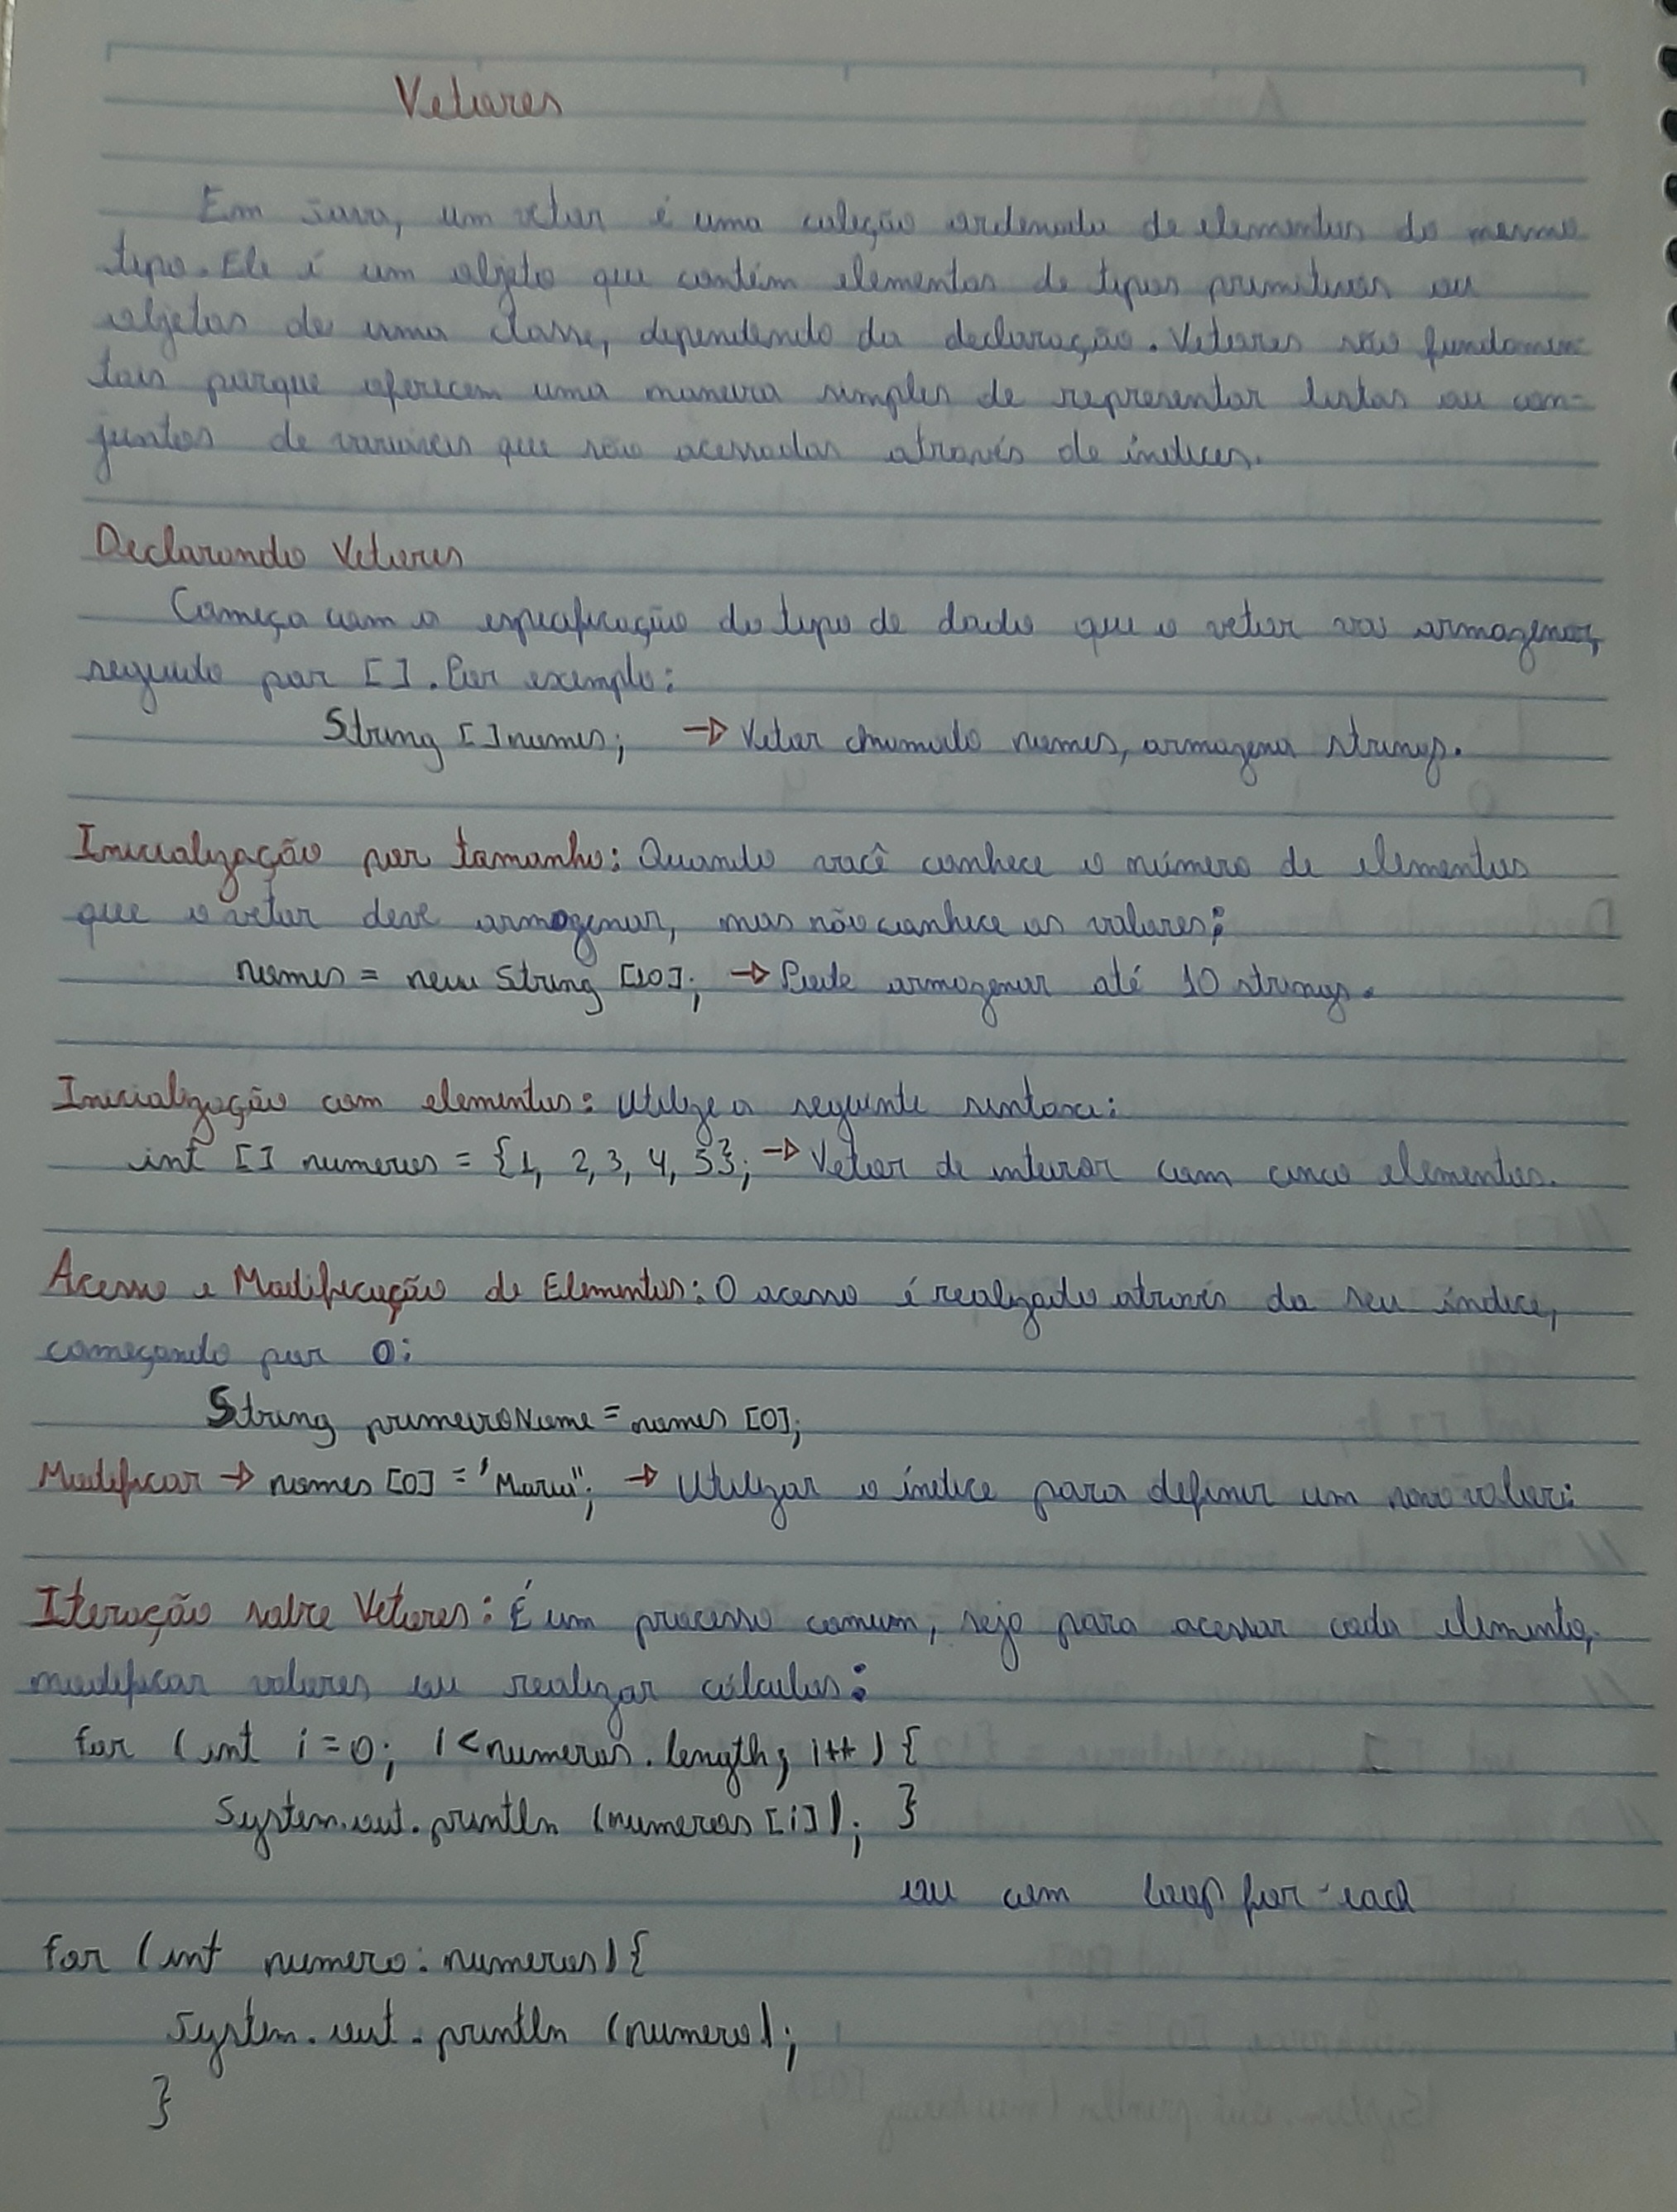 Vetores
Em Java, um vetor é uma coleção ordenada de elementos do mesmo
tipo. Ele é um objeto que contém elementos de tipos primitivos ou
objetos de uma classe, dependendo da declaração. Vetores são fundamen-
tais porque oferecem uma maneira simples de representar listas ou con-
juntos de variáveis que são acessadas através de índices.
Declarando Vetores
Começa com a especificação do tipo de dado que o vetor vai armazenar,
seguido por []. Por exemplo:
String []nomes; → Vetor chamado nomes, armazena strings.
Inicialização por tamanho: Quando você conhece o número de elementos
que o vetor deve armazenar, mas não conhece os valores:
nomes = new String [10]; → Pode armazenar até 10 strings.
Inicialização com elementos: Utilize a seguinte sintaxe:
int [] numeros = {1, 2, 3, 4, 5}; → Vetor de inteiror com cinco elementos.
Acesso e Modificação de Elementos: O acesso é realizado através do seu índice,
começando por 0:
String primeiroNome = nomes [0];
Modificar → nomes [0] = 'Maria"; → Utilizar o índice para definir um novo valor:
Iteração sobre Vetores: É um processo comum, seja para acessar cada elemento,
modificar valores ou realizar cálculos:
for (int i = 0; i < numeros.length; i++) {
System.out.println (numeros [i]); }
ou com loop for-each
for (int numero: numeros) {
System.out.println (numero);
}